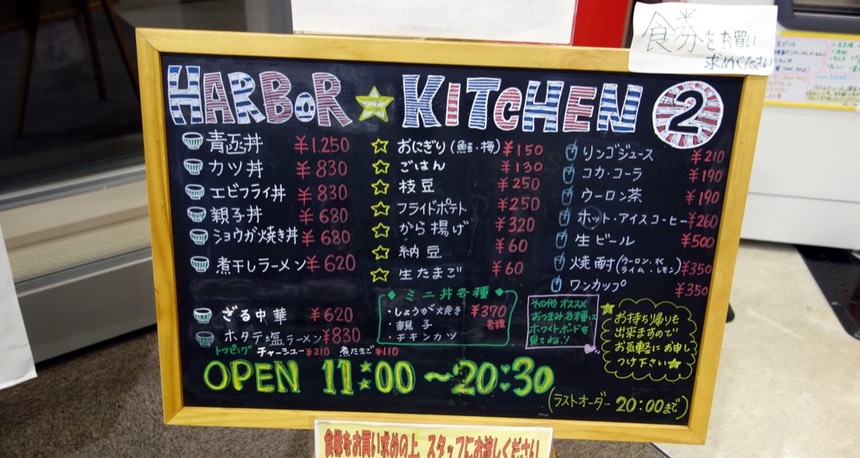 食券をお買い
求めください
HARBOR★KITCHEN ②
青函丼 ¥1,250
カツ丼 ¥830
エビフライ丼 ¥830
親子丼 ¥680
ショウガ焼き丼 ¥680
煮干しラーメン ¥620
ざる中華 ¥620
ホタテ塩ラーメン ¥830
トッピング チャーシュー ¥210 煮たまご ¥110
☆ おにぎり(鮭・梅) ¥150
☆ ごはん ¥130
☆ 枝豆 ¥250
☆ フライドポテト ¥250
☆ から揚げ ¥320
☆ 納豆 ¥60
☆ 生たまご ¥60
◆ ミニ丼各種 ◆
・しょうが焼き ¥370
・親子 各種
・チキンカツ
リンゴジュース ¥210
コカ・コーラ ¥190
ウーロン茶 ¥190
ホット・アイスコーヒー ¥260
生ビール ¥500
焼酎(ウーロン・水 ライム・レモン) ¥350
ワンカップ ¥350
その他 オススメ
おつまみ各種は
ホワイトボードを
見てね!!
お持ち帰りも
出来ますので
お気軽にお申し
つけ下さい★
OPEN 11:00～20:30
(ラストオーダー 20:00まで)
食券をお買い求めの上、スタッフにお渡しください